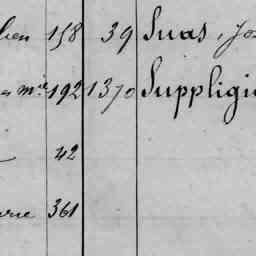 158 39 Suas, Jo
mie 192 1370 Suppligi
42
361